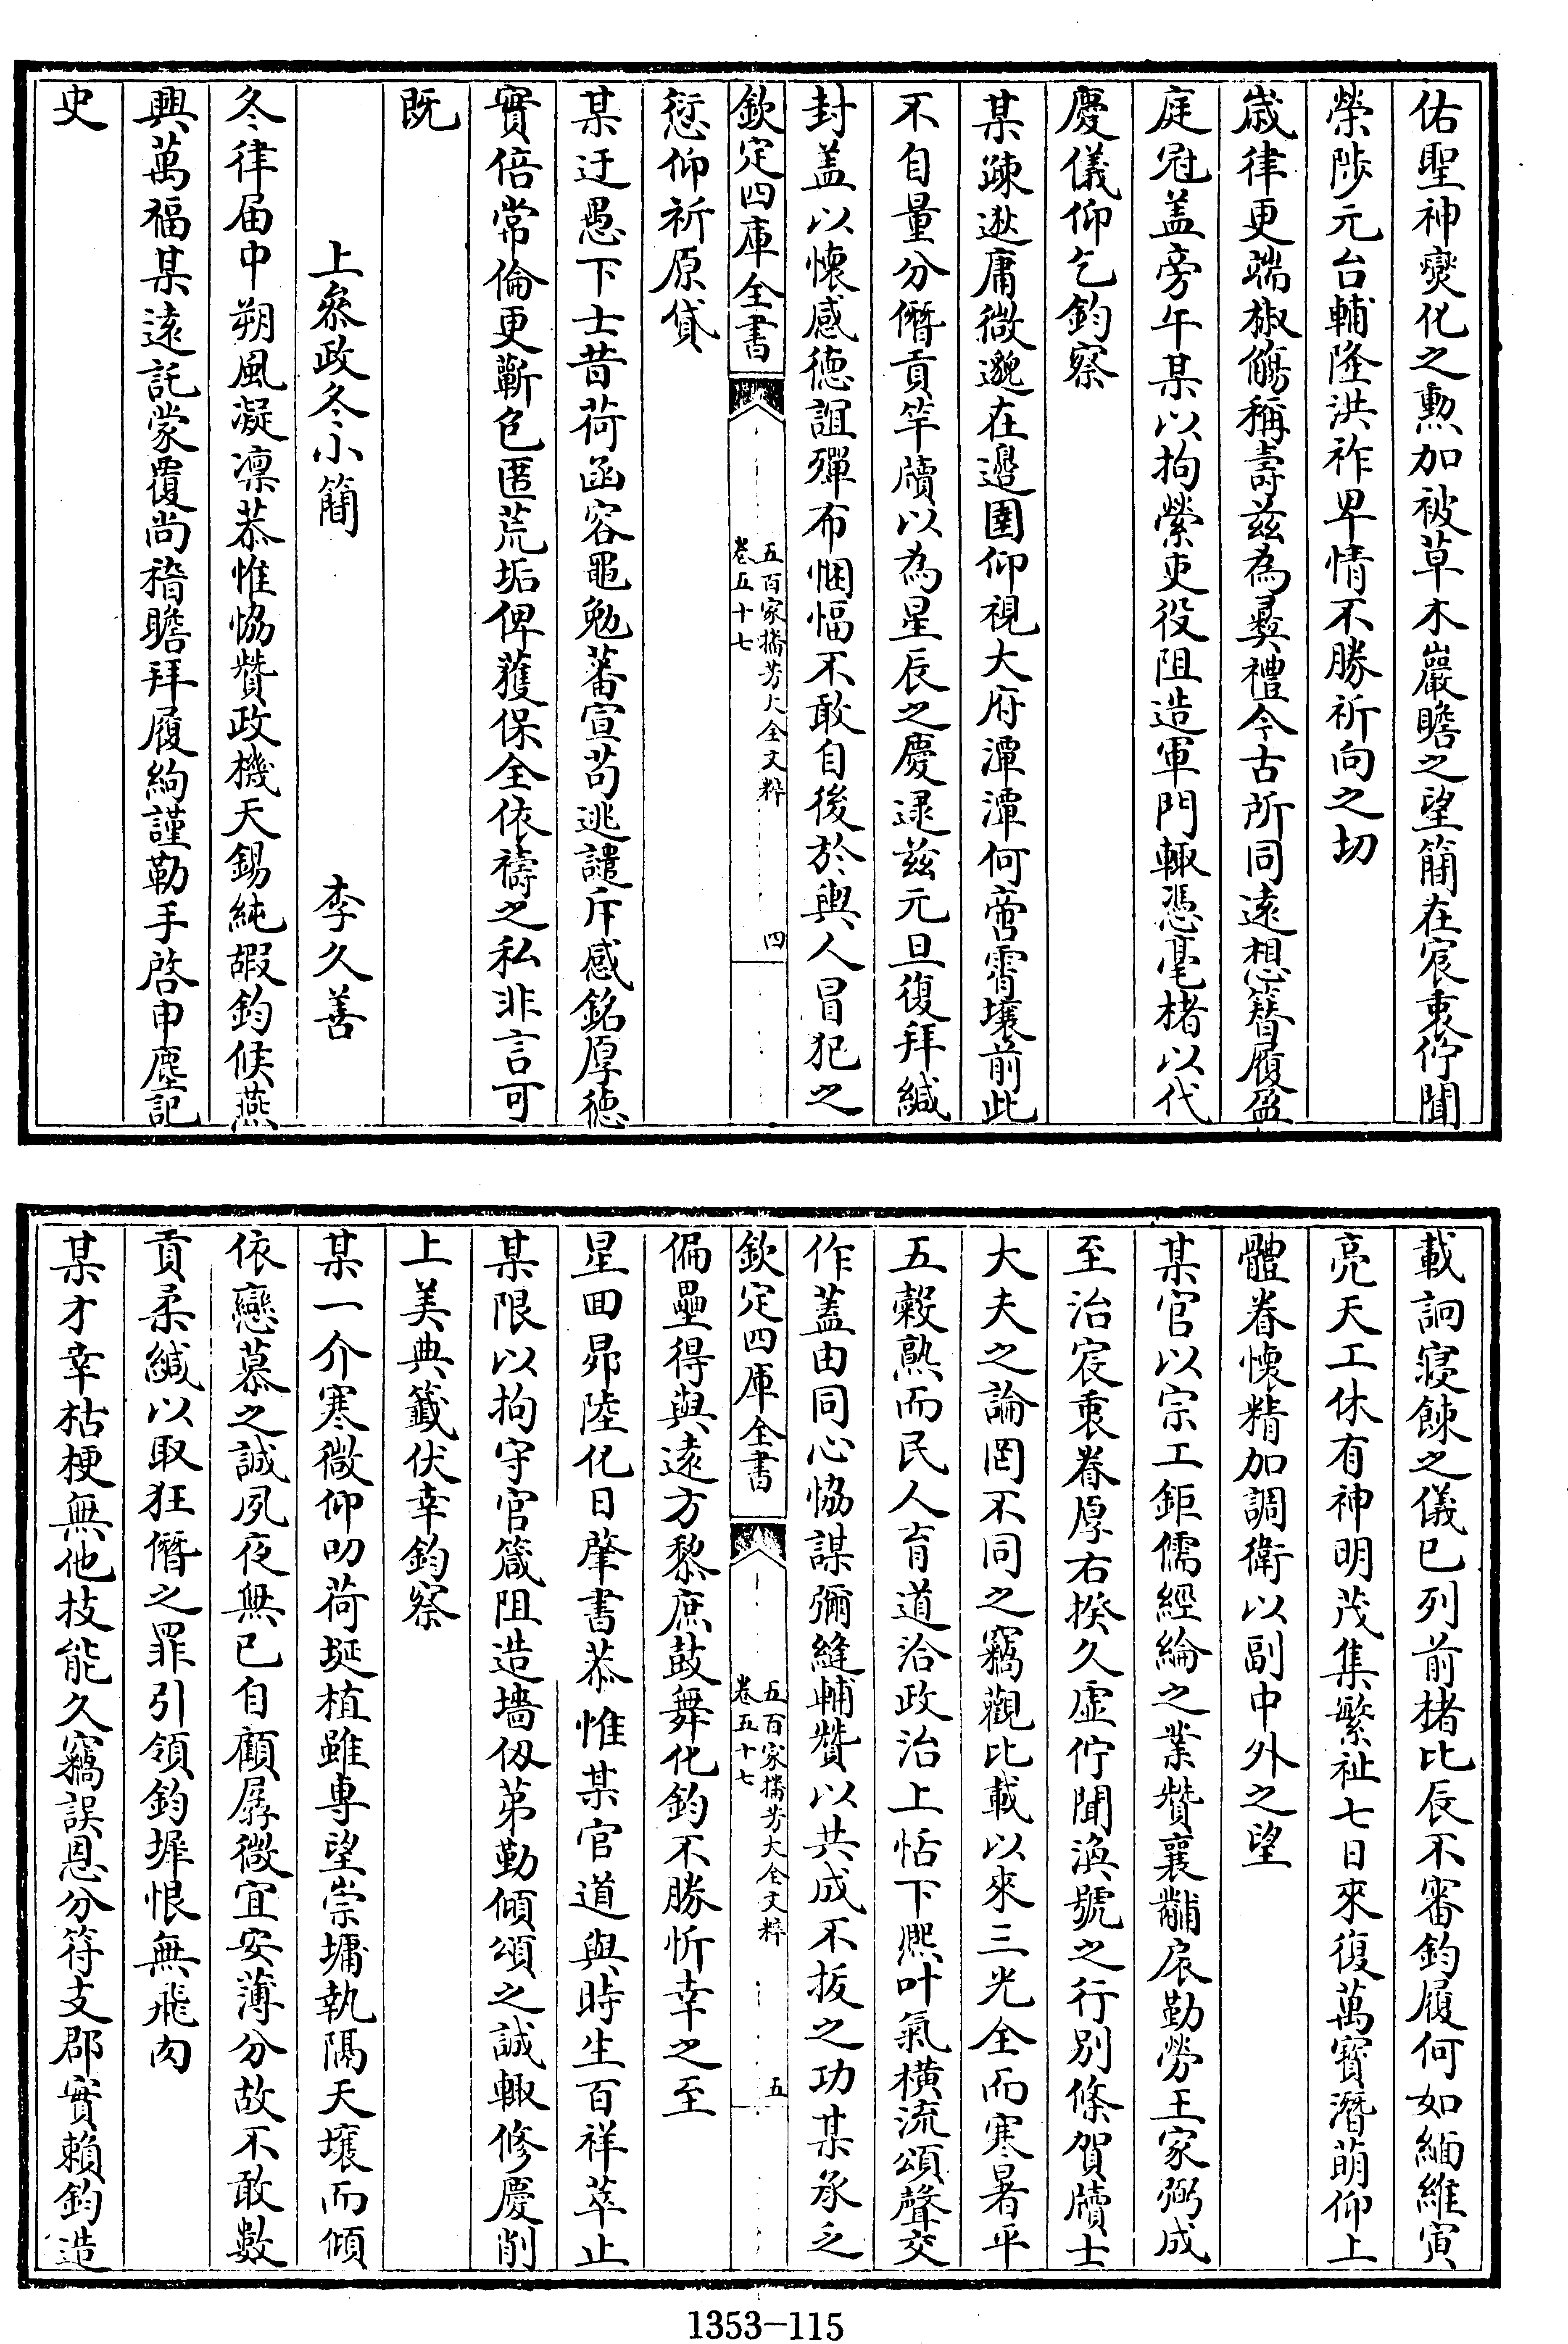 佑聖神爕化之勲加被草木巖瞻之望簡在宸衷佇聞
榮陟元台輔隆洪祚卑情不勝祈向之切
歳律更端椒觴稱壽兹為彞禮今古所同遠想簪履盈
庭冠盖旁午某以拘縈吏役阻造軍門輙憑毫楮以代
慶儀仰乞鈞察
某疎逖庸微邈在邉圉仰視大府潭潭何啻霄壤前此
不自量分僭貢竿牘以為星辰之慶逮兹元旦復拜緘
封盖以懐感徳誼殫布悃愊不敢自後於輿人冒犯之
欽定四庫全書
五百家播芳大全文粹
卷五十七
四
愆仰祈原貸
某迂愚下士昔荷函容黽勉蕃宣苟逃譴斥感銘厚徳
實倍常倫更蘄包匿荒垢俾獲保全依禱之私非言可
既
上叅政冬小簡 李久善
冬律届中朔風凝凜恭惟恊贊政機天錫純嘏鈞候燕
興萬福某遠託蒙覆尚稽瞻拜履絢謹勒手啓申塵記
史
載詗寢餗之儀已列前楮比辰不審鈞履何如緬維寅
亮天工休有神明茂集繁祉七日來復萬寳潛萌仰上
體眷懐精加調衛以副中外之望
某官以宗工鉅儒經綸之業贊襄黼扆勤勞王家弼成
至治宸衷眷厚右揆久虚佇聞渙號之行别條賀牘士
大夫之論罔不同之竊觀比載以來三光全而寒暑平
五穀熟而民人育道洽政治上恬下熈叶氣横流頌聲交
作蓋由同心恊謀彌縫輔贊以共成不拔之功某承乏
欽定四庫全書
五百家播芳大全文粹
卷五十七
五
偏壘得與遠方黎庶鼓舞化鈞不勝忻幸之至
星囬昴陸化日肇書恭惟某官道與時生百祥萃止
某限以拘守官箴阻造墻仭苐勤傾頌之誠輙修慶削
上美典籖伏幸鈞察
某一介寒微仰叨荷埏植雖専望崇墉執隔天壤而傾
依戀慕之誠夙夜無已自顧孱微宜安薄分故不敢數
貢柔緘以取狂僭之罪引領鈞墀恨無飛肉
某才幸枯梗無他技能久竊誤恩分符支郡實賴鈞造
1353-115